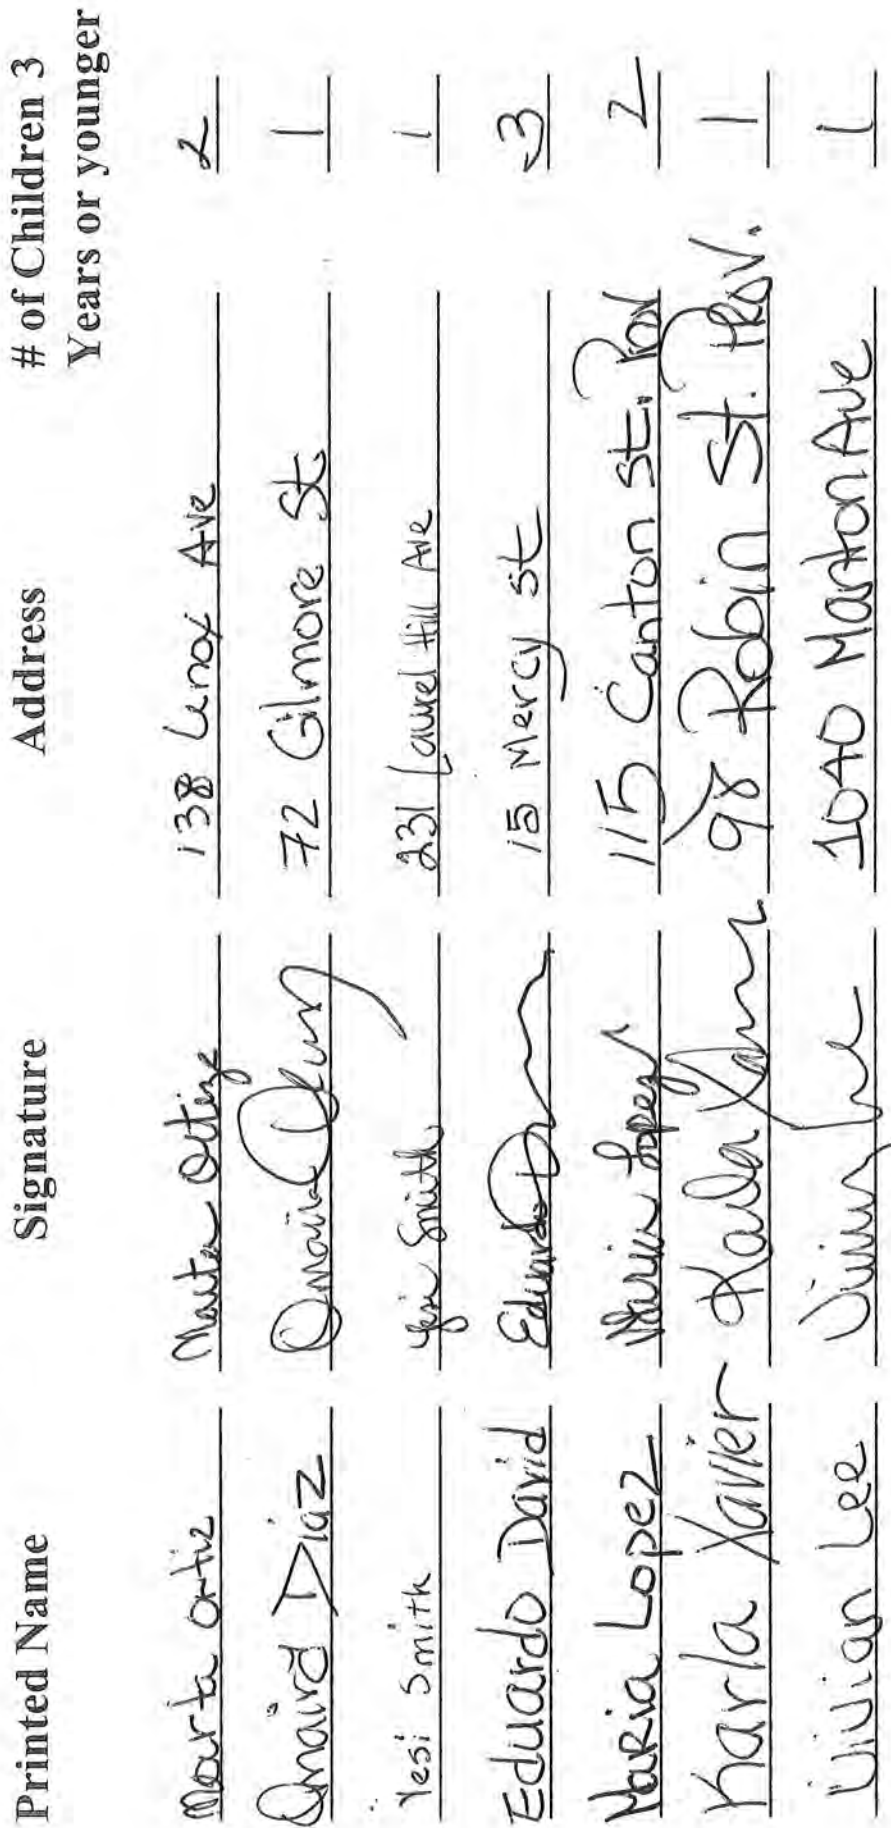 Printed Name Signature Address # of Children 3 Years or younger
Marta Ortiz Marta Ortiz 138 Lenox Ave 2
Omaira Diaz Omaira 72 Gilmore St. 1
Yesi Smith Yesi Smith 231 Laurel Hill Ave 1
Eduardo David Eduardo 15 Mercy St 3
Maria Lopez Maria Lopez 115 Canton St. Prov 2
Karla Xavier Karla Xavier 98 Robin St. Prov. 1
Vivian Lee 1040 Manton Ave 1